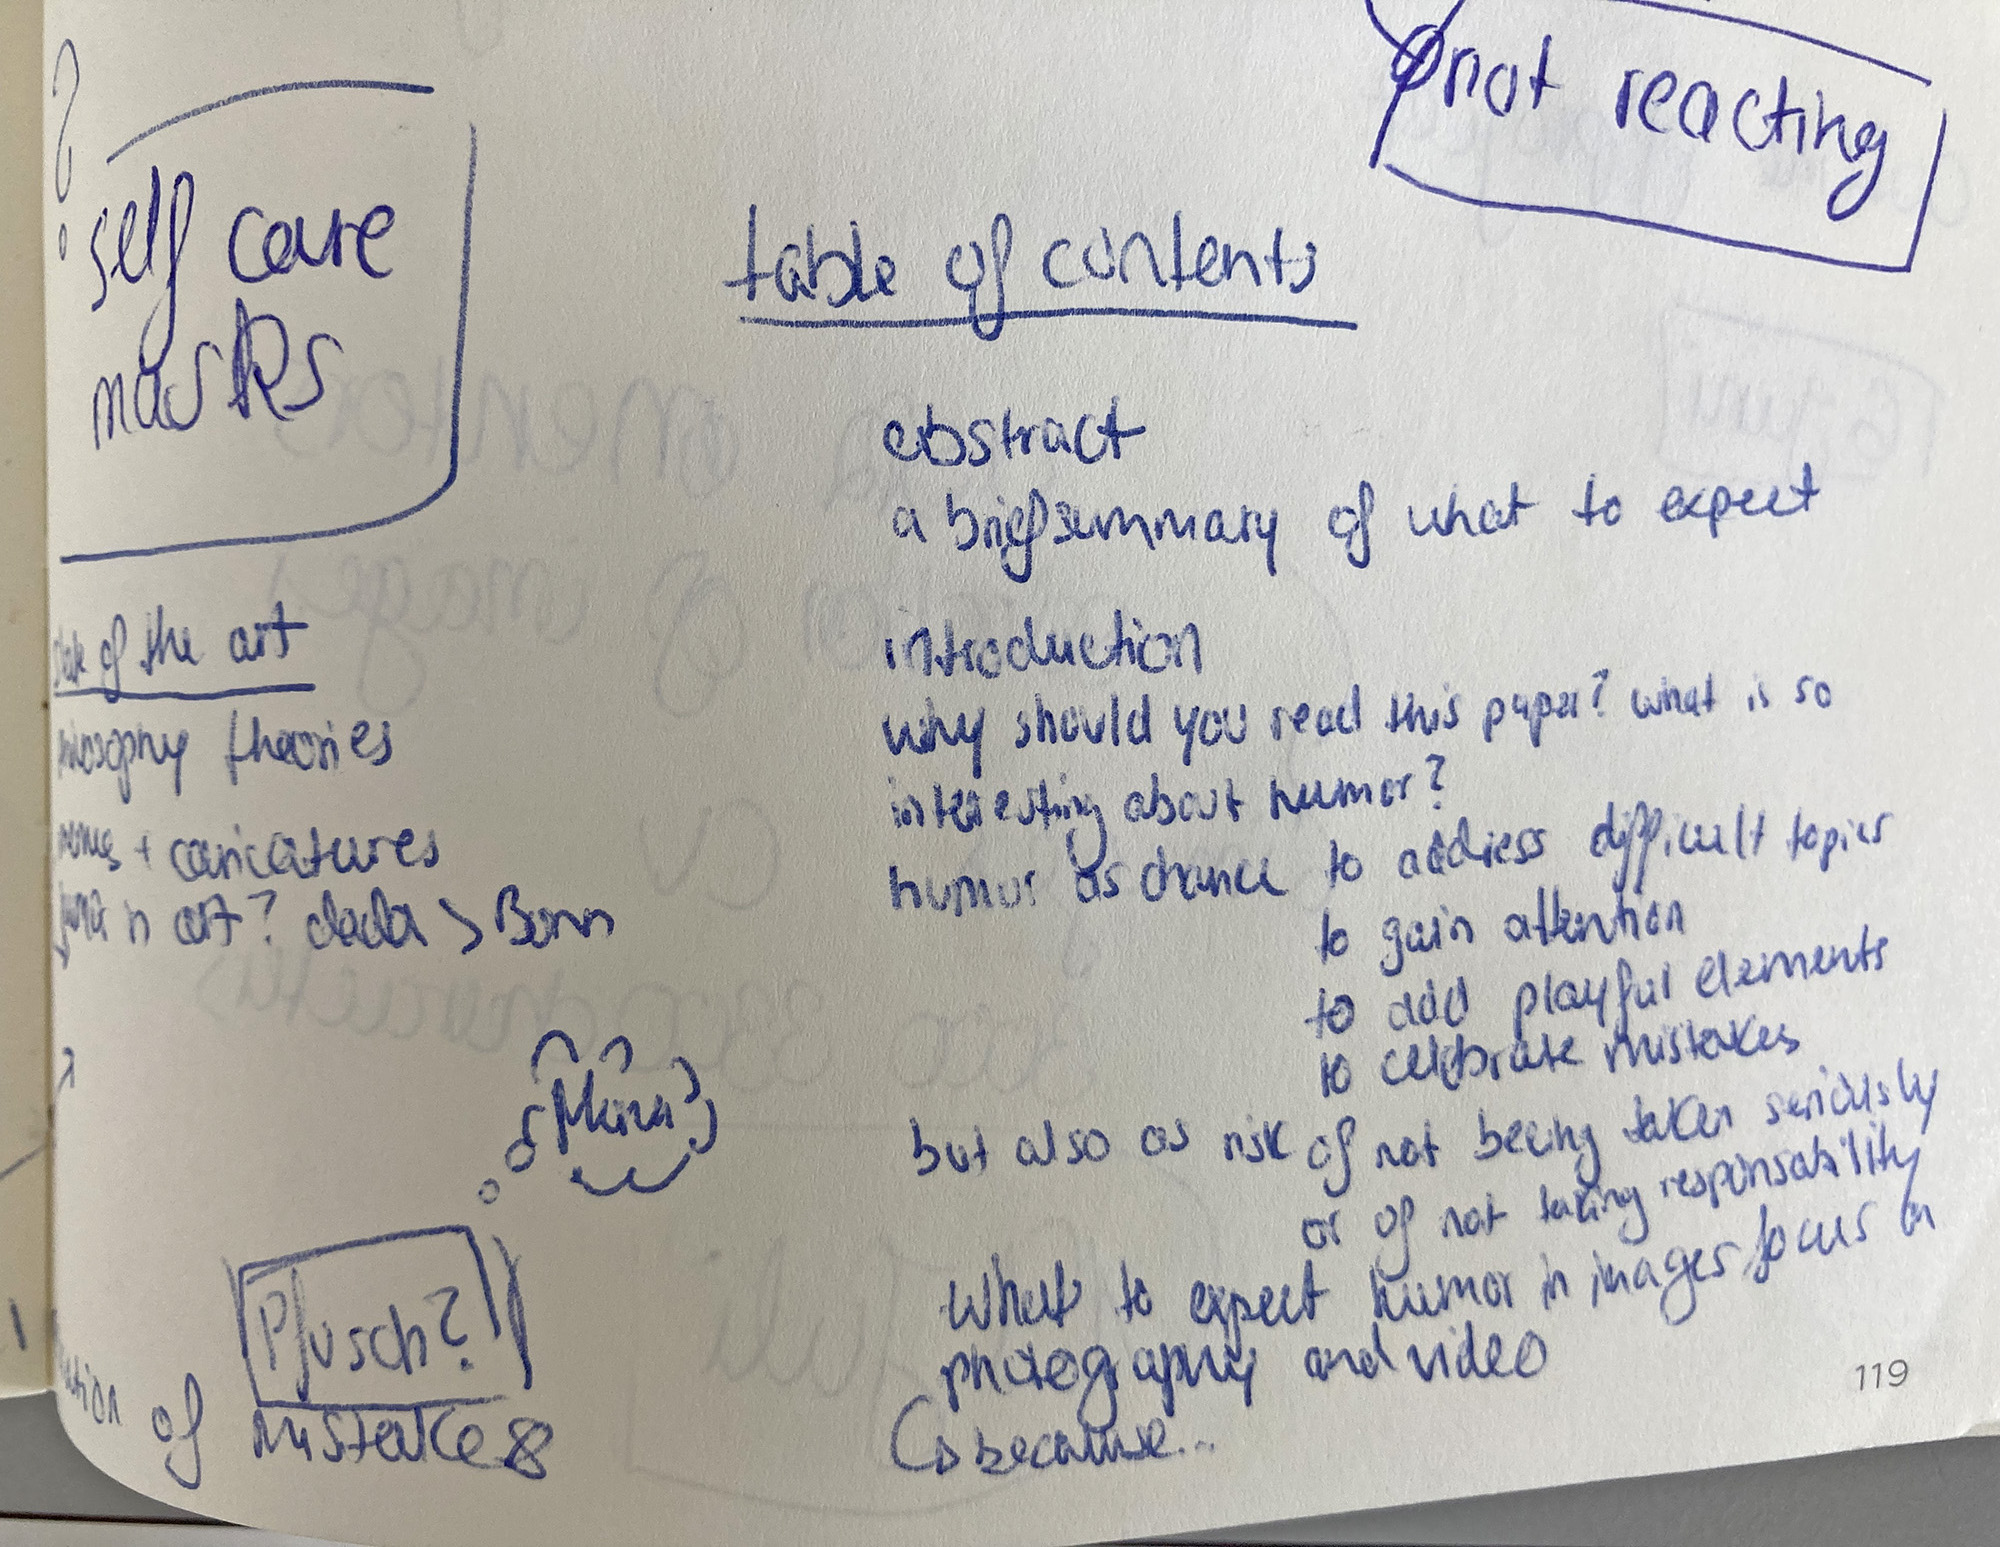 not reacting
self care
masks
table of contents
abstract
a brief summary of what to expect
introduction
why should you read this paper? what is so
interesting about humor?
humor as chance to address difficult topics
to gain attention
to add playful elements
to celebrate mistakes
but also as risk of not beeing taken seriously
or of not taking responsability
what to expect humor in images focus on
photography and video
because...
of the art
philosophy theories
+ caricatures
in art? dada > Bonn
Pfusch?
of mistakes
119